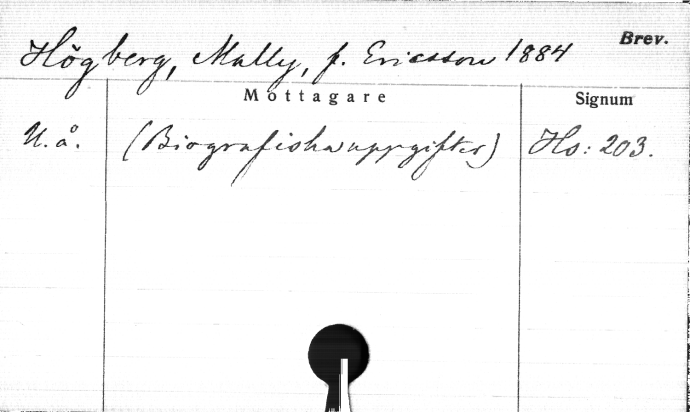 Högberg, Mally, f. Ericsson 1884
Brev.
Mottagare Signum
U. å. (Biografiska uppgifter) Hs: 203.